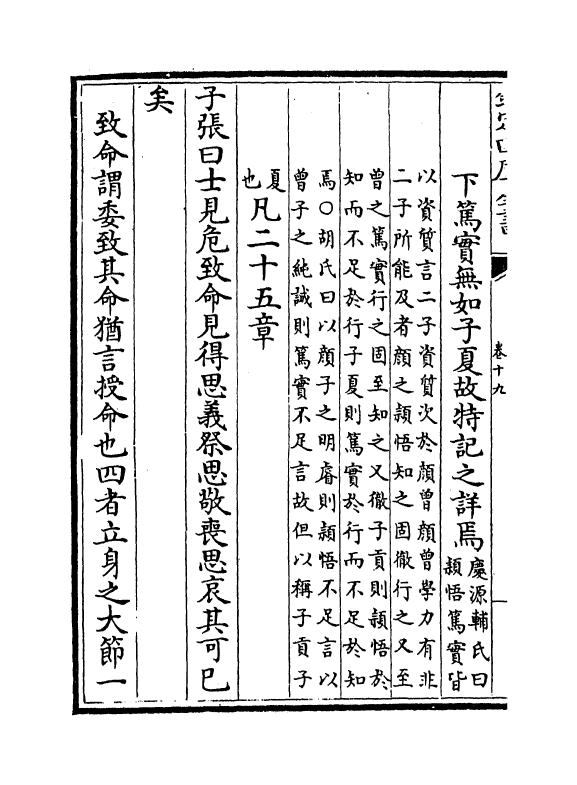 欽定四庫全書
卷十九
下篤實無如子夏故特記之詳焉
慶源輔氏曰
穎悟篤實皆
以資質言二子資質次於顏曾顏曾學力有非
二子所能及者顏之穎悟知之固徹行之又至
曾之篤實行之固至知之又徹子貢則穎悟於
知而不足於行子夏則篤實於行而不足於知
焉○胡氏曰以顏子之明睿則穎悟不足言以
曾子之純誠則篤實不足言故但以稱子貢子
夏
也
凡二十五章
子張曰士見危致命見得思義祭思敬喪思哀其可已
矣
致命謂委致其命猶言授命也四者立身之大節一